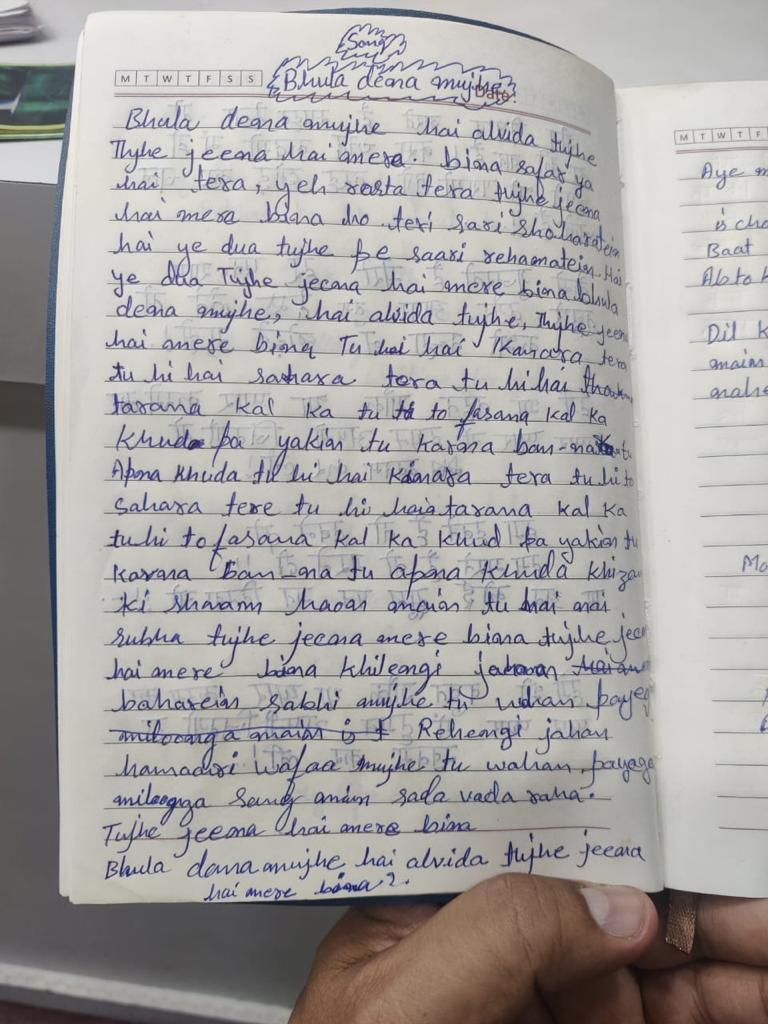 Song
M T W T F S S
Bhula dena mujhe
Date:
Bhula dena mujhe hai alvida tujhe
Thjhe jeena hai mere. bina safar ya
hai tera, yeh rasta tera tujhe jeena
hai mera bina ho teri sari shoharatein
hai ye dua tujhe pe saari rehamatein. Hai
ye dua Tujhe jeena hai mere bina bhula
dena mujhe, hai alvida tujhe, Thjhe jeena
hai mere bina Tu hai hai Kanara tera
tu hi hai sahara tera tu hi hai
tarana kal ka tu to fasana kal ka
Khud pa yakin tu karna ban-na tu
Apna Khuda tu hi hai kinara tera tu hi to
sahara tere tu hi hai tarana kal ka
tu hi to fasana kal ka? khud pa yakin tu
karna ban-na tu apna khuda khiza
ki shaam haoon main tu hai nai
subha tujhe jeena mere bina tujhe jeen
hai mere bina khilengi jahaan
baharein sabhi mujhe tu wahan payeg
miloonga main is Rehengi jahan
hamaari wafaa mujhe tu wahan payega
miloonga sang main sada vada raha.
Tujhe jeena hai mere bina
Bhula dena mujhe hai alvida tujhe jeena
hai mere bina?.
M T W T F
Aye m
is cha
Baat
Ab to k
Dil k
main
nahe
Ma